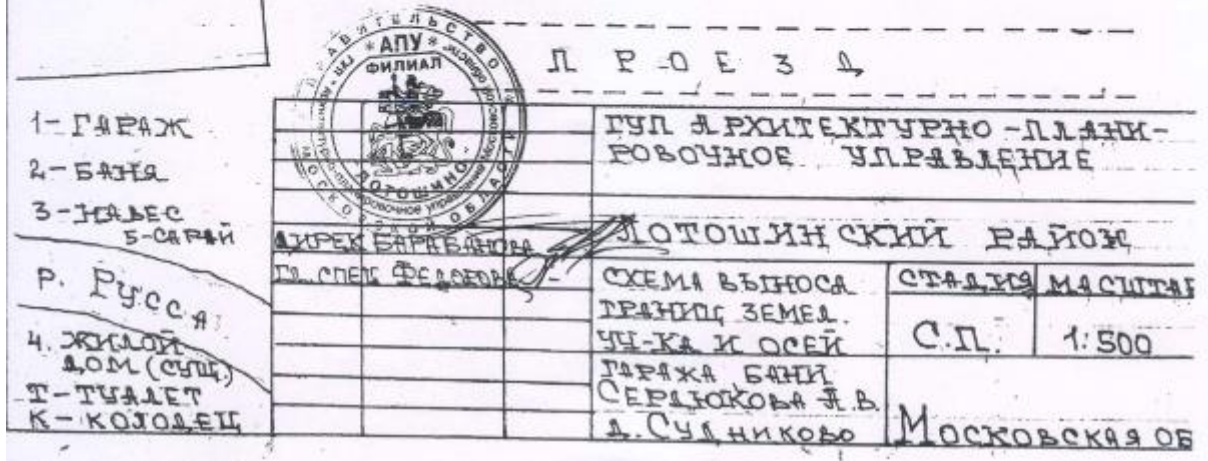 ПРОЕЗД
1-ГАРАЖ
2-БАНЯ
3-НАВЕС
5-САРАЙ
Р. РУССА
4. ЖИЛОЙ
ДОМ (СУЩ.)
Т-ТУАЛЕТ
К-КОЛОДЕЦ
ПРАВИТЕЛЬСТВО МОСКОВСКОЙ ОБЛАСТИ
* АПУ *
ФИЛИАЛ
ЛОТОШИНО
ГУП АРХИТЕКТУРНО-ПЛАНИ-
РОВОЧНОЕ УПРАВЛЕНИЕ
ДИРЕК БАРАБАНОВА
ЛОТОШИНСКИЙ РАЙОН
ГЛ. СПЕЦ ФЕДОРОВА
СХЕМА ВЫНОСА
ГРАНИЦ ЗЕМЕЛ.
УЧ-КА И ОСЕЙ
ГАРАЖА БАНИ
СЕРДЮКОВА А.В.
Д. СУДНИКОВО
СТАДИЯ МАСШТАБ
С.П. 1:500
МОСКОВСКАЯ ОБ